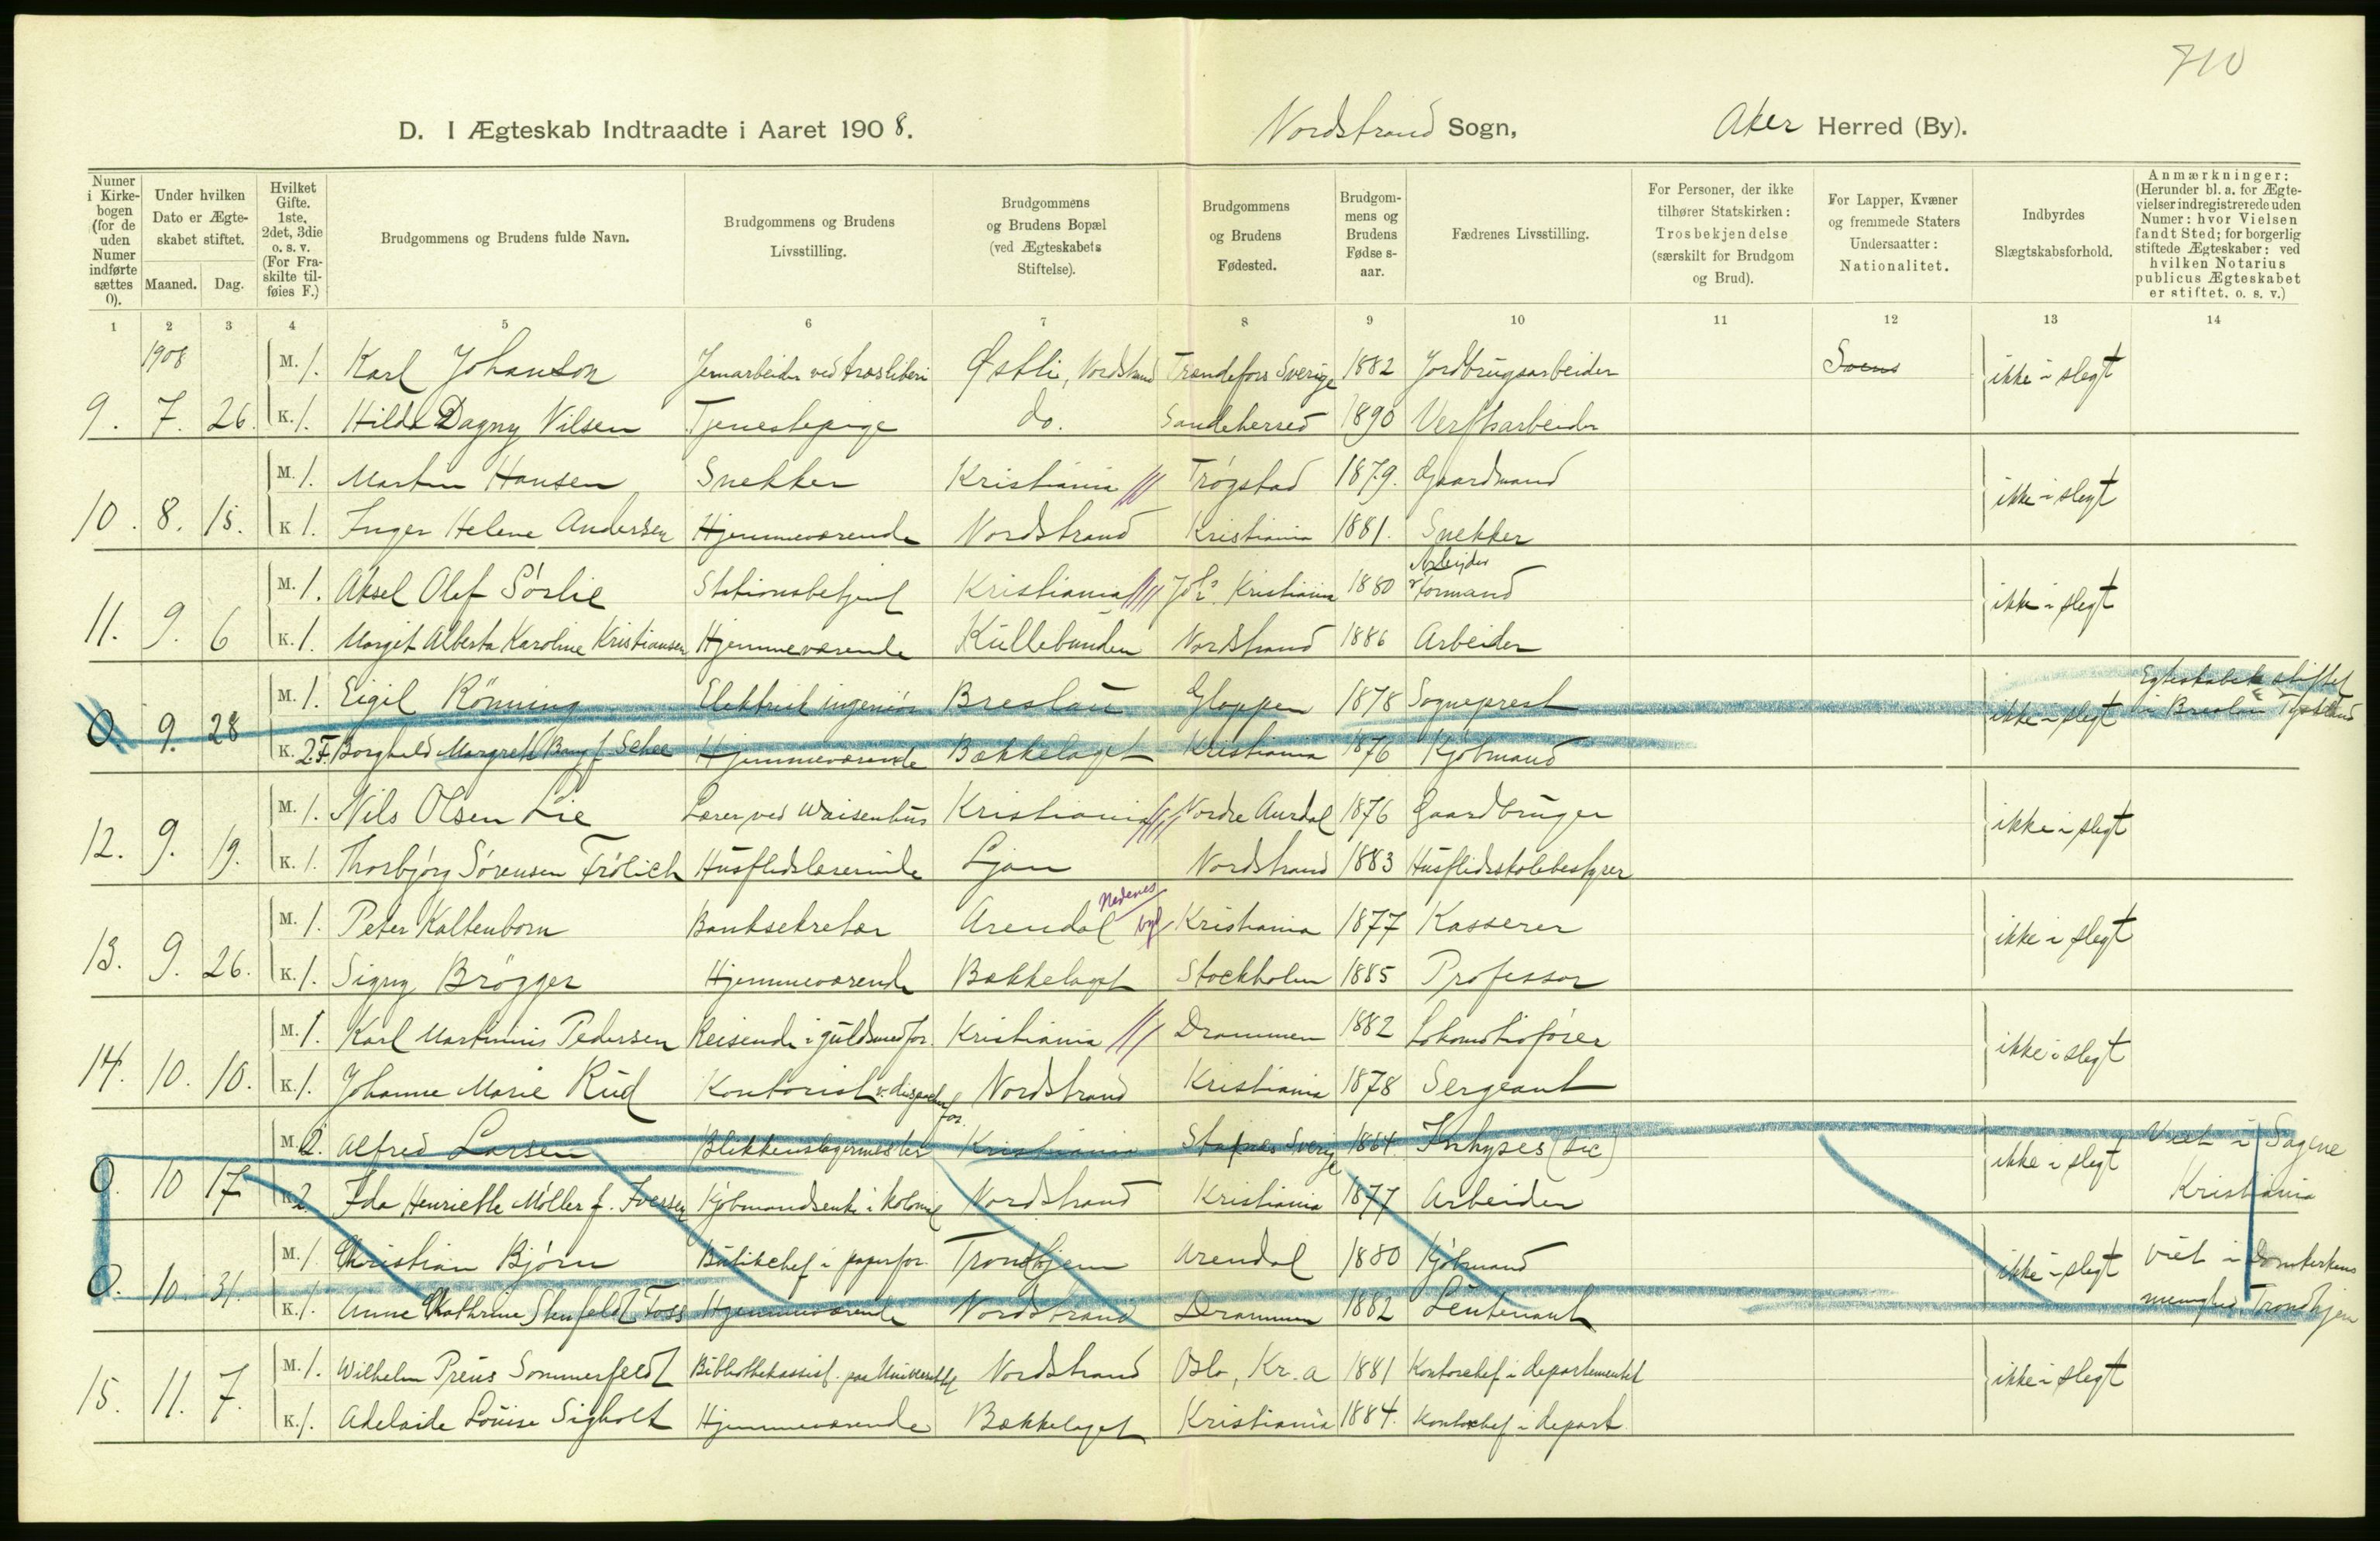 710
D. I Ægteskab Indtraadte i Aaret 1908. Nordstrand Sogn, Aker Herred (By).
Numer i Kirkebogen (for de uden Numer indførte sættes 0).
Under hvilken Dato er Ægteskabet stiftet.
Maaned. Dag.
Hvilket Gifte. 1ste, 2det, 3die o. s. v. (For Fraskilte tilføies F.)
Brudgommens og Brudens fulde Navn.
Brudgommens og Brudens Livsstilling.
Brudgommens og Brudens Bopæl (ved Ægteskabets Stiftelse).
Brudgommens og Brudens Fødested.
Brudgommens og Brudens Fødselsaar.
Fædrenes Livsstilling.
For Personer, der ikke tilhører Statskirken: Trosbekjendelse (særskilt for Brudgom og Brud).
For Lapper, Kvæner og fremmede Staters Undersaatter: Nationalitet.
Indbyrdes Slægtskabsforhold.
Anmærkninger: (Herunder bl. a. for Ægtevielser indregistrerede uden Numer: hvor Vielsen fandt Sted; for borgerlig stiftede Ægteskaber: ved hvilken Notarius publicus Ægteskabet er stiftet. o. s. v.)
1 2 3 4 5 6 7 8 9 10 11 12 13 14
1908 M. 1. Karl Johanson Jernarbeider ved træsliberi Østli, Nordstrand Sverige 1882 Jordbrugsarbeider Svensk ikke i slegt
9. 7. 26. K. 1. Hilda Dagny Nilsen Tjenestepige do. Sandeherred 1890 Verftsarbeider
M. 1. Martin Hansen Snekker Kristiania Trøgstad 1879. Gaardmand ikke i slegt
10. 8. 15. K. 1. Inger Helene Andersen Hjemmeværende Nordstrand Kristiania 1881. Snekker
M. 1. Aksel Olaf Sørlie Stationsbetjent Kristiania Kristiania 1880 Arbeider formand ikke i slegt
11. 9. 6 K. 1. Margit Alberta Karoline Kristiansen Hjemmeværende Kullebunden Nordstrand 1886 Arbeider
M. 1. Eigil Rönning Elektrisk ingeniör Breslau Gloppen 1878 Sogneprest ikke i slegt Egteskabet stiftet
0 9. 28 K. 2.F. Borghild Margrete Bang f. Schee Hjemmeværende Bækkelaget Kristiania 1876 Kjøbmand i Breslau Tyskland
M. 1. Nils Olsen Lie Lærer ved Waisenhus Kristiania Nordre Aurdal 1876 Gaardbruger ikke i slegt
12. 9. 19. K. 1. Thorbjørg Sörensen Frölich Husflidslærerinde Ljan Nordstrand 1883 Husflidsskolebestyrer
M. 1. Peter Kaltenborn Banksekretær Arendal Nedenes Kristiania 1877 Kasserer ikke i slegt
13. 9. 26. K. 1. Signy Brøgger Hjemmeværende Bækkelaget Stockholm 1885 Professor
M. 1. Karl Martinius Pedersen Reisende i guldsmedfor. Kristiania Drammen 1882 Lokomotivfører ikke i slegt
14. 10. 10. K. 1. Johanne Marie Rud Kontorist Nordstrand Kristiania 1878 Sergeant
M. 2. Alfred Larsen Blikkenslagermester Kristiania Sverige 1864 (sic) ikke i slegt Viet i Sagene
0. 10 17 K. 2. Ida Henriette Møller f. Iversen Kjøbmandsenke i kolonial Nordstrand Kristiania 1877 Arbeider Kristiania
M. 1 Christian Bjørn Butikchef i papirfor. Trondhjem Arendal 1880 Kjøbmand ikke i slegt viet i Domkirkens
0. 10. 31. K. 1. Anne Cathrine Stenfeldt Foss Hjemmeværende Nordstrand Drammen 1882 Løitenant menighed, Trondhjem
M. 1. Wilhelm Preus Sommerfeldt Bibliothekassist. paa Universitetet Nordstrand Oslo, Kr.a 1881 Kontorchef i departementet ikke i slegt
15. 11. 7. K. 1. Adelaide Louise Sigholt Hjemmeværende Bækkelaget Kristiania 1884. Kontorchef i depart.